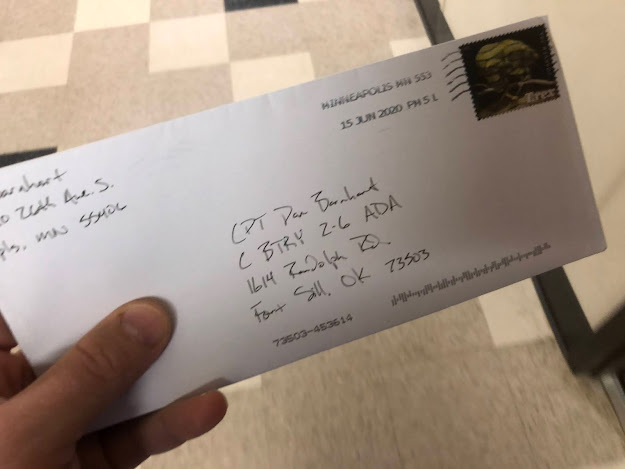 MINNEAPOLIS MN 553
15 JUN 2020 PM 5 L
T.rex
arnhart
26th Ave. S.
pls, MN 55406
CPT Dan Barnhart
C BTRY 2-6 ADA
1614 Randolph RD.
Fort Sill, OK 73503
73503-453614